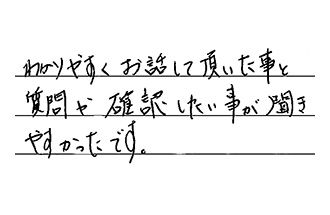 わかりやすくお話して頂いた事と
質問や確認したい事が聞き
やすかったです。